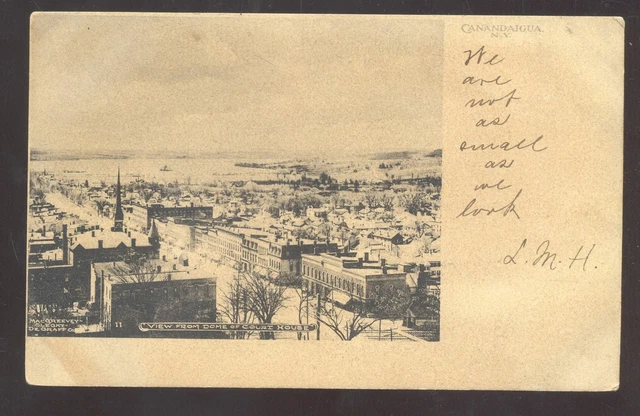 CANANDAIGUA.
N.Y.
We
are
not
as
small
as
we
look
L. M. H.
MACGREEVEY-
SLEGHT-
DE GRAFF CO.
11
VIEW FROM DOME OF COURT HOUSE